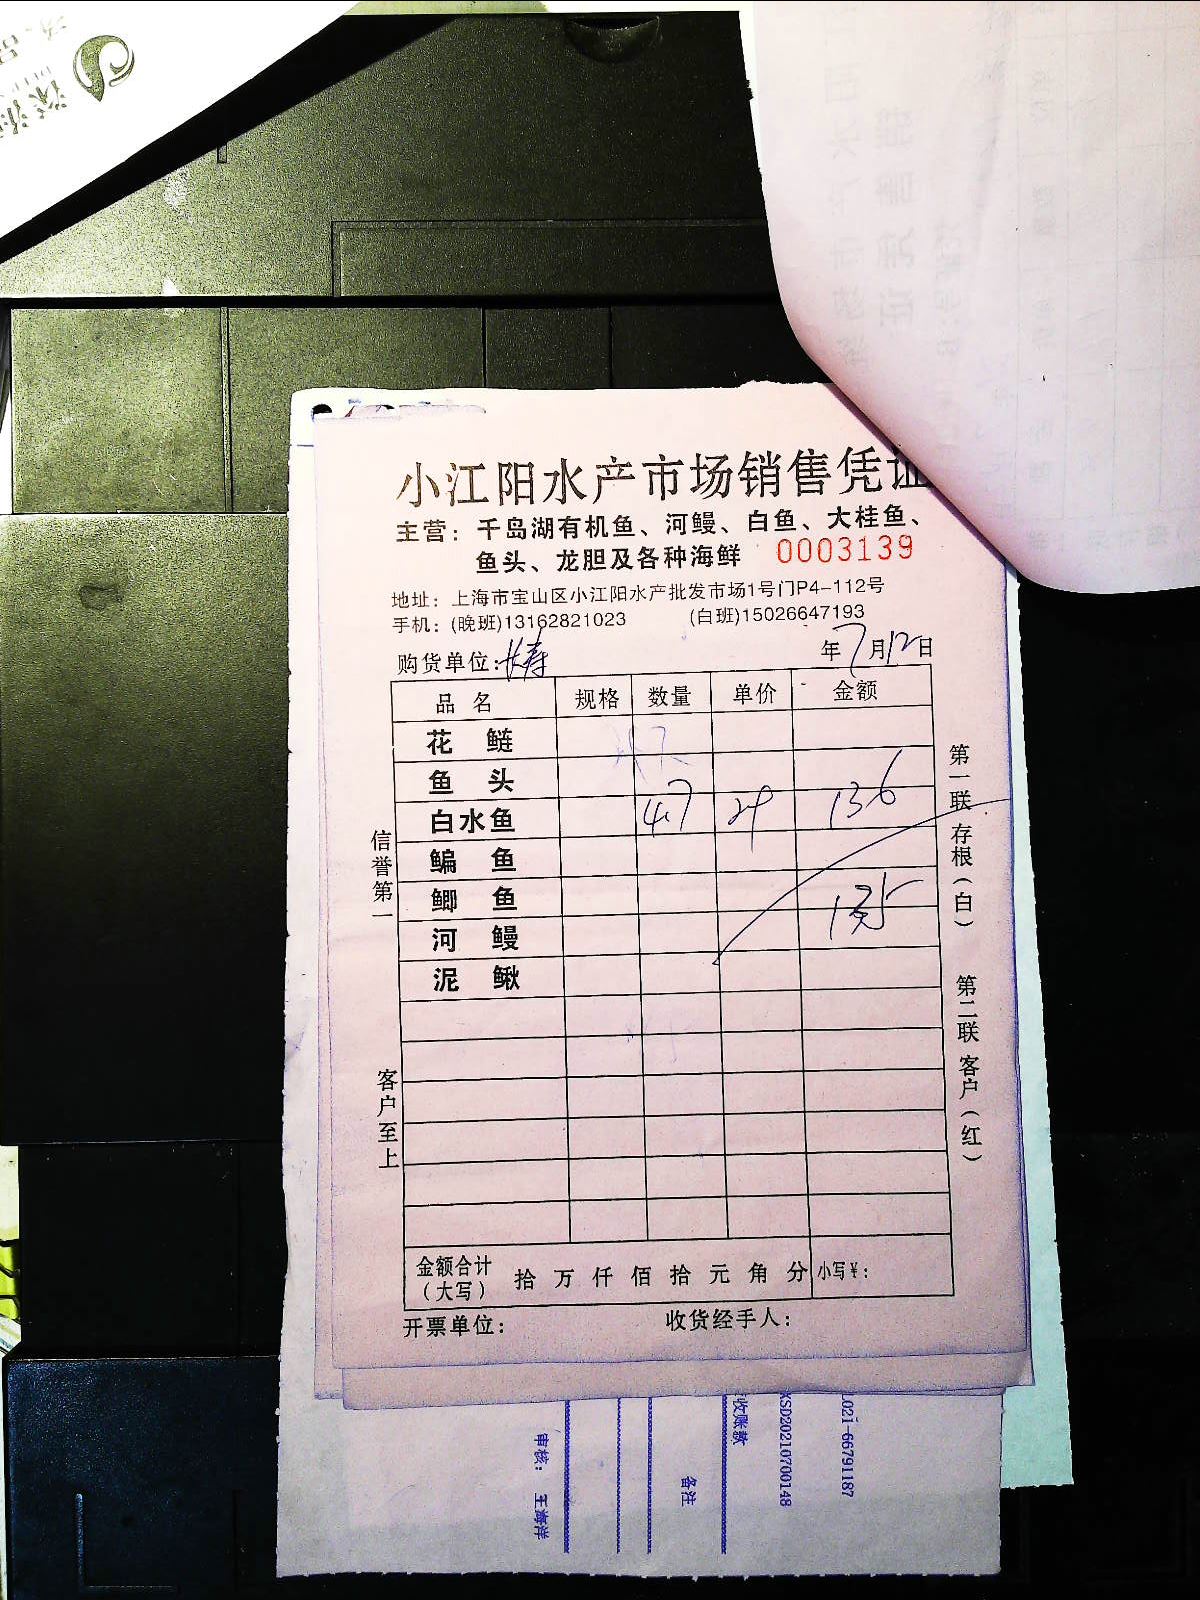 小江阳水产市场销售凭证
主营：千岛湖有机鱼、河鳗、白鱼、大桂鱼、
鱼头、龙胆及各种海鲜 0003139
地址：上海市宝山区小江阳水产批发市场1号门P4-112号
手机：(晚班)13162821023 (白班)15026647193
购货单位：长寿 年7月12日
品名 规格 数量 单价 金额
花鲢
鱼头
白水鱼 4.7 29 136
鳊鱼
鲫鱼 135
河鳗
泥鳅
信誉第一
客户至上
第一联 存根（白）
第二联 客户（红）
金额合计（大写） 拾万仟佰拾元角分 小写¥：
开票单位： 收货经手人：
收账款
XSD20210700148
021-66791187
备注
审核： 王海洋